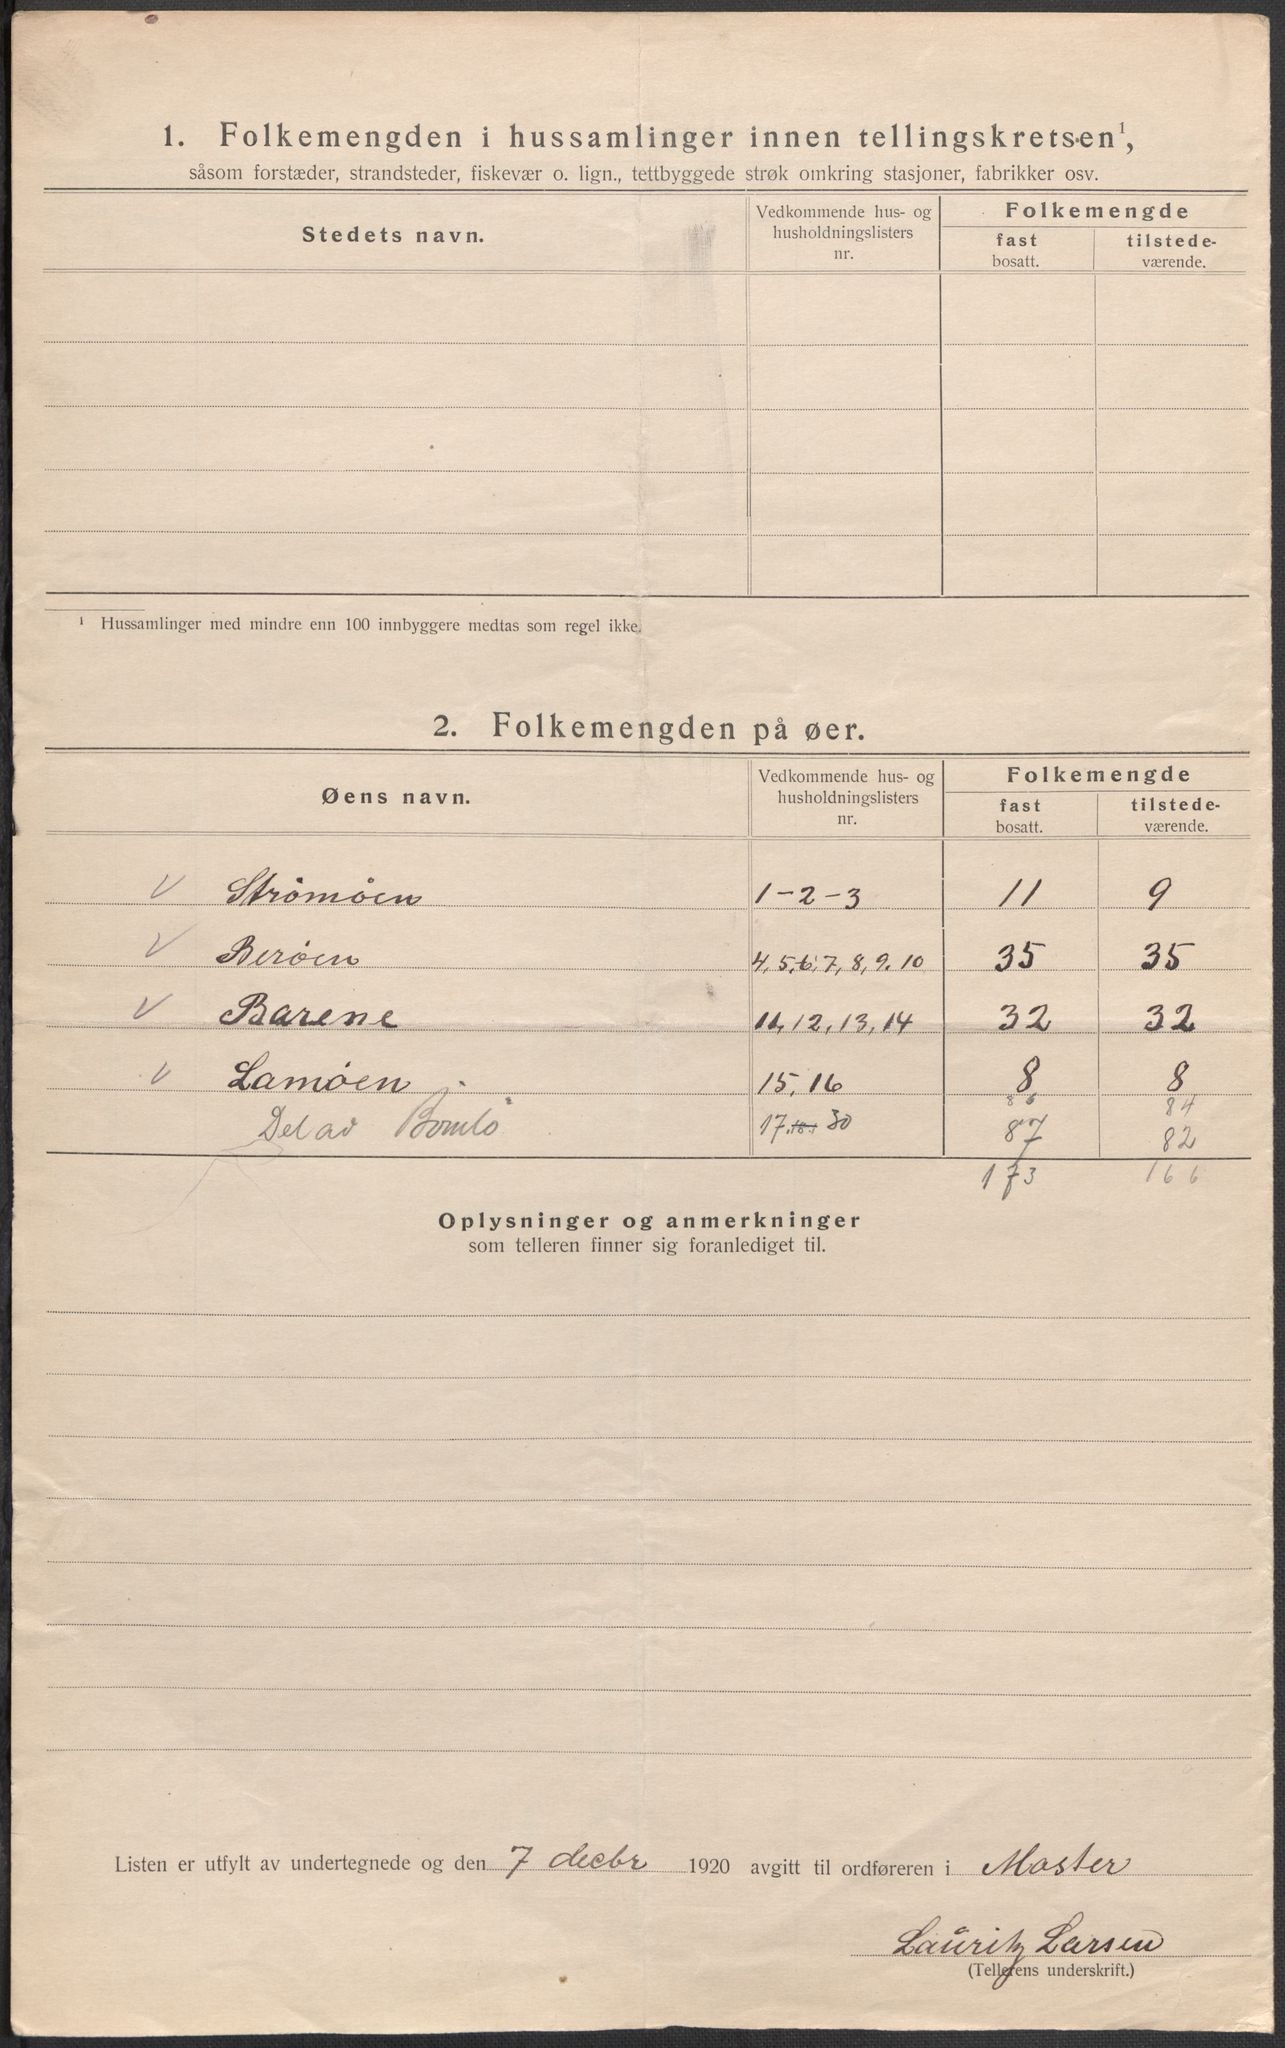 1. Folkemengden i hussamlinger innen tellingskretsen¹,
såsom forstæder, strandsteder, fiskevær o. lign., tettbyggede strøk omkring stasjoner, fabrikker osv.
Stedets navn.
Vedkommende hus- og
husholdningslisters
nr.
Folkemengde
fast
bosatt.
tilstede-
værende.
¹ Hussamlinger med mindre enn 100 innbyggere medtas som regel ikke.
2. Folkemengden på øer.
Øens navn.
Vedkommende hus- og
husholdningslisters
nr.
Folkemengde
fast
bosatt.
tilstede-
værende.
√ Strömöen 1-2-3 11 9
√ Beröen 4, 5, 6, 7, 8, 9. 10 35 35
√ Barene 11, 12, 13, 14 32 32
√ Lamöen 15, 16 8 8
86 84
Del av Bömlo 17 18 30 87 82
173 166
Oplysninger og anmerkninger
som telleren finner sig foranlediget til.
Listen er utfylt av undertegnede og den 7 decbr 1920 avgitt til ordføreren i Moster
Lauritz Larsen
(Tellerens underskrift.)